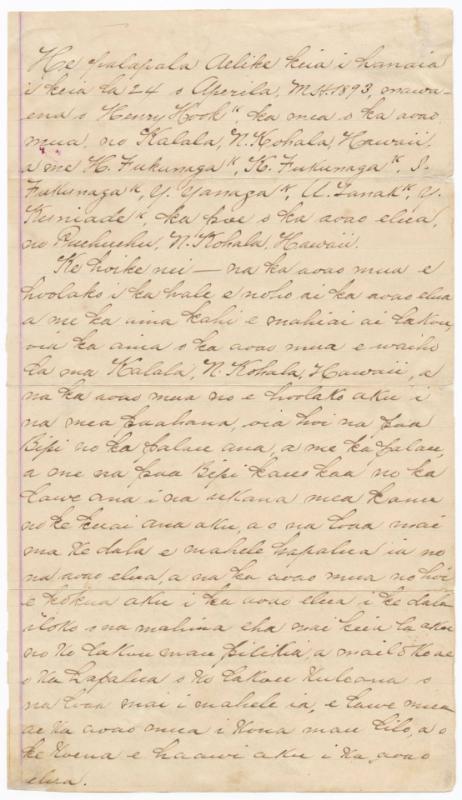 He palapala Aelike keia i hanaia
i keia la 24 o Aperila, M.H. 1893, mawa-
ena o Henry Hook ᵏ, ka mea o ka aoao
mua, no Kalala, N. Kohala, Hawaii,
a me H. Fukunaga ᵏ, K. Fukunaga ᵏ, S.
Fukunaga ᵏ, Y. Yanaga ᵏ, U. Tanak ᵏ, Y.
ᵏ, ka poe o ka aoao elua,
no Puehuehu, N. Kohala, Hawaii.
Ke hoike nei — na ka aoao mua e
hoolako i ka hale e noho ai ka aoao elua
a me ka aina kahi e mahiai ai lakou,
oia ka aina o ka aoao mua e waiho
la ma Kalala, N. Kohala, Hawaii, a
na ka aoao mua no e hoolako aku i
na mea paahana, oia hoi na paa
Bipi no ka palau ana, a me ka palau,
a me na paa Bipi kauo kaa no ka
lawe ana i na ukana mea kanu
no ke kuai ana aku, a o na loaa mai
ma ke dala e mahele hapalua ia no
na aoao elua, a na ka aoao mua no hoi
e kokua aku i ka aoao elua i ke dala
iloko o na mahina eha mai keia la aku
no ko lakou mau pilikia, a mailoko ae
o ka hapalua o ko lakou kuleana o
na loaa mai i mahele ia, e lawe mua
ae ka aoao mua i kona mau lilo, a o
ke koena e haawi aku i ka aoao
elua.